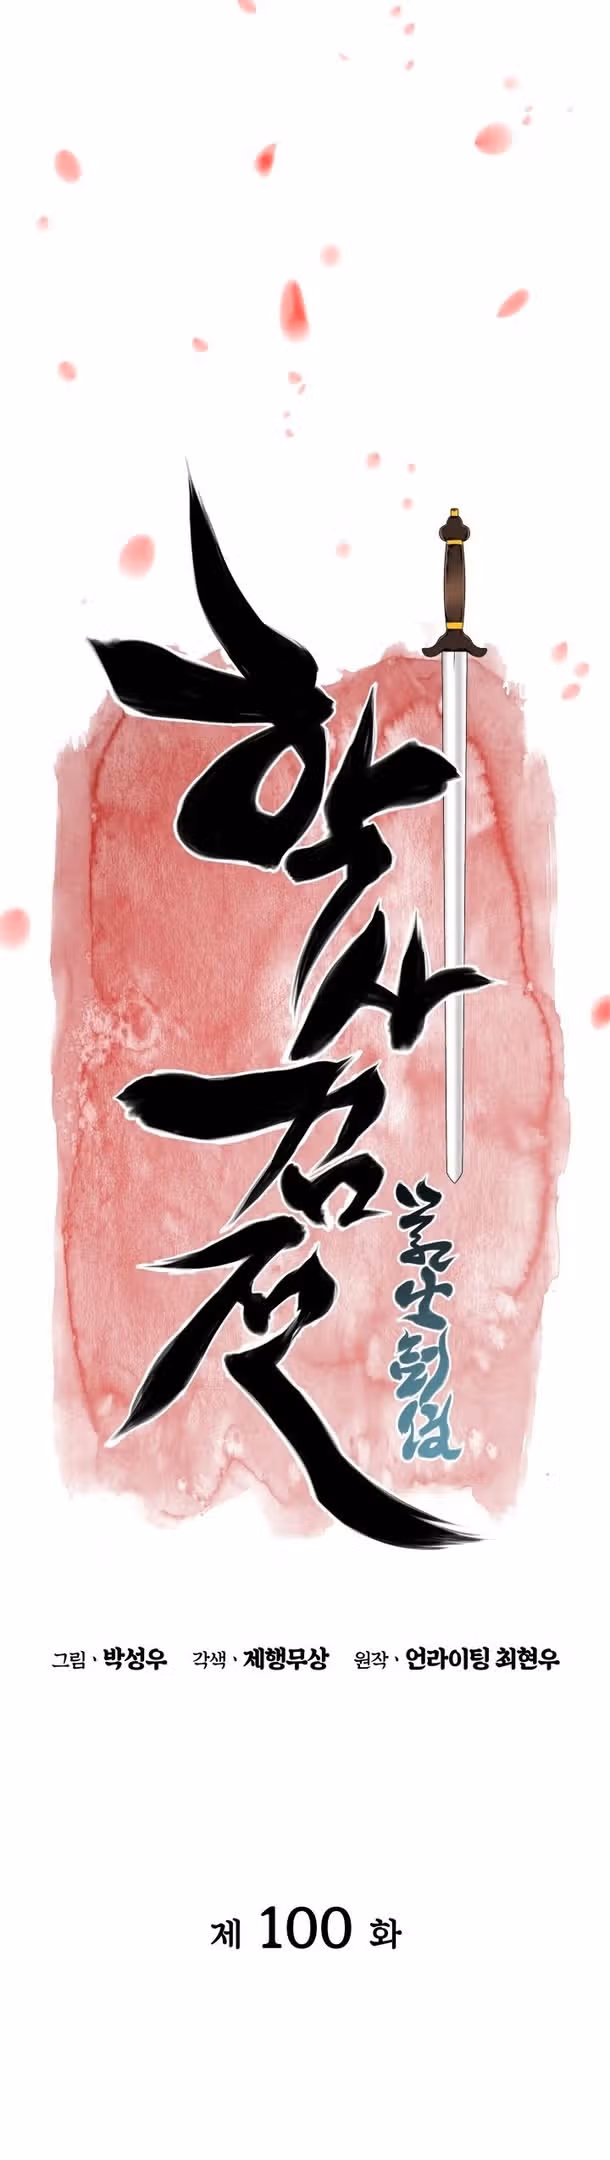 학사
검전
學士劍傳
그림 · 박성우 각색 · 제행무상 원작 · 언라이팅 최현우
제 100 화